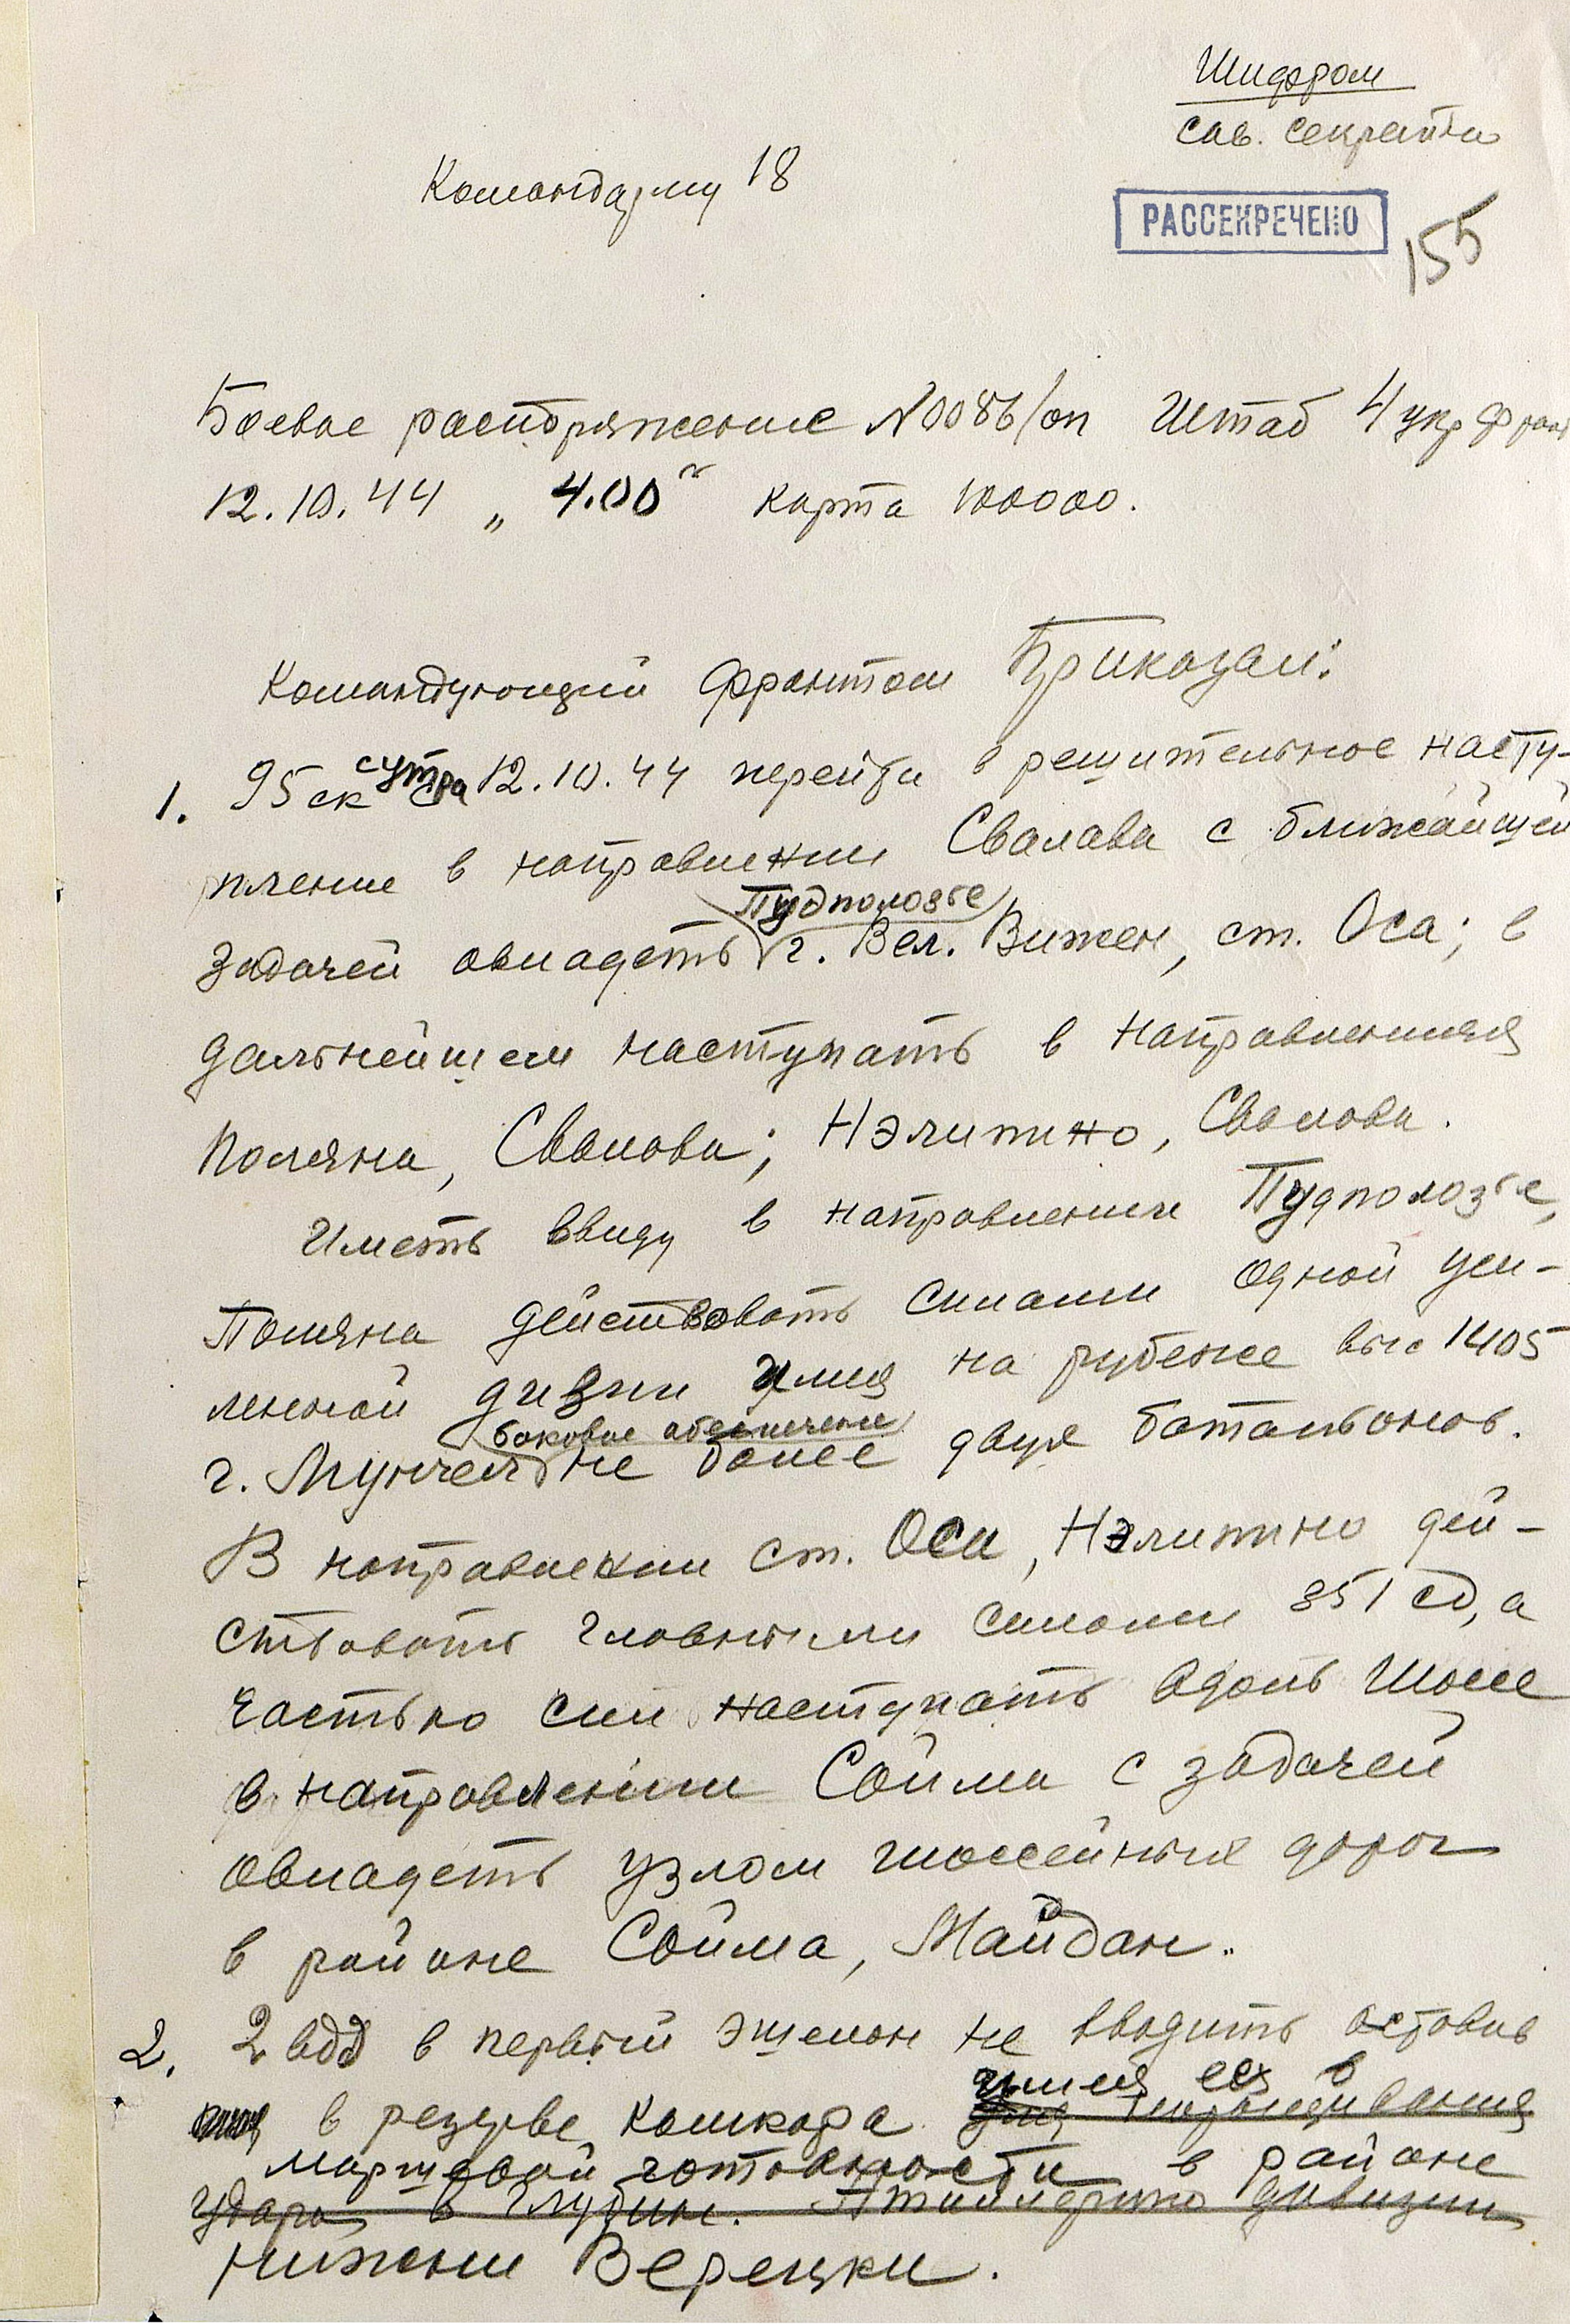 Шифром
сов. секретно
Командарму 18
РАССЕКРЕЧЕНО
155
Боевое распоряжение №0086/оп Штаб 4 укр фронт
12.10.44 „ 4.00 карта 100000.
Командующий фронтом Приказал:
1. 95 ск с утра 12.10.44 перейти в решительное насту-
пление в направлении Свалява с ближайшей
Пудполозье
задачей овладеть г. Вел. Вижен, ст. Оса; в
дальнейшем наступать в направлениях
Поляна, Свалова; Нэлипино, Свалова.
Иметь ввиду в направлении Пудполозье,
Поляна действовать силами одной уси-
ленной дивзии имея на рубеже выс 1405
боковое обеспечение
г. Мунчел не более двух батальонов.
В направлении ст. Оса, Нэлипино дей-
ствовать главными силами 351 сд, а
частью сил наступать вдоль Шоссе
в направлении Сойма с задачей
овладеть узлом шоссейных дорог
в районе Сойма, Майдан.
2. 2 вдд в первый эшелон не вводить оставив
имея ее в
в резерве комкора для наращивания
маршевой готовности в районе
удара в глубине. Артиллерию дивизии
нижни Верецки.